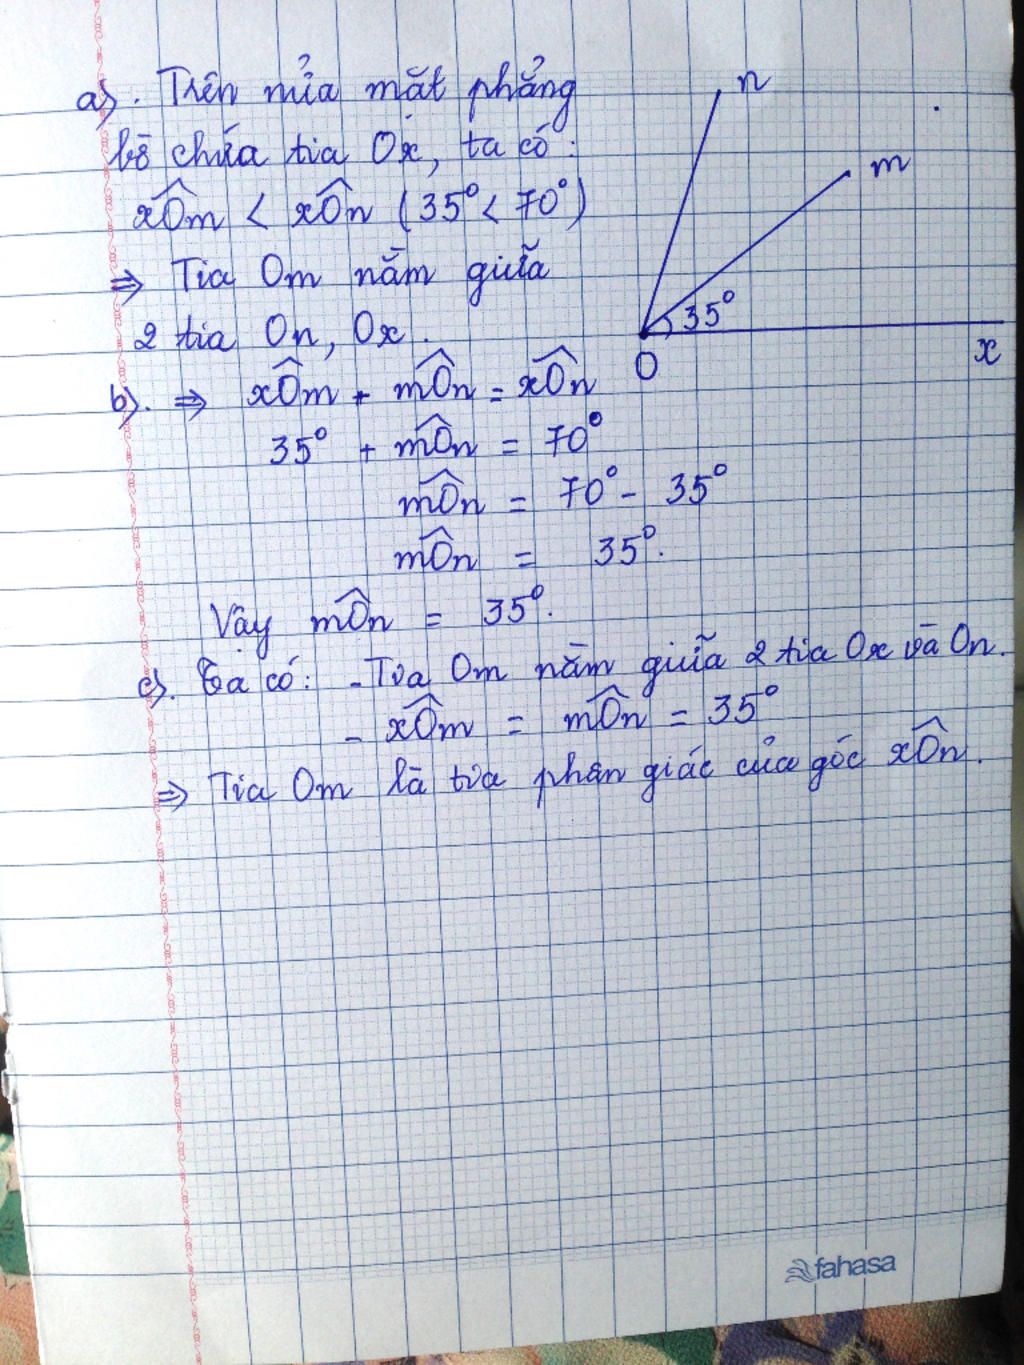 a). Trên nửa mặt phẳng
bờ chứa tia Ox, ta có:
xÔm < xÔn (35° < 70°)
⇒ Tia Om nằm giữa
2 tia On, Ox.
n
m
35°
O
x
b). ⇒ xÔm + mÔn = xÔn
35° + mÔn = 70°
mÔn = 70° - 35°
mÔn = 35°.
Vậy mÔn = 35°.
c). Ta có: - Tia Om nằm giữa 2 tia Ox và On.
- xÔm = mÔn = 35°
⇒ Tia Om là tia phân giác của góc xÔn.
fahasa